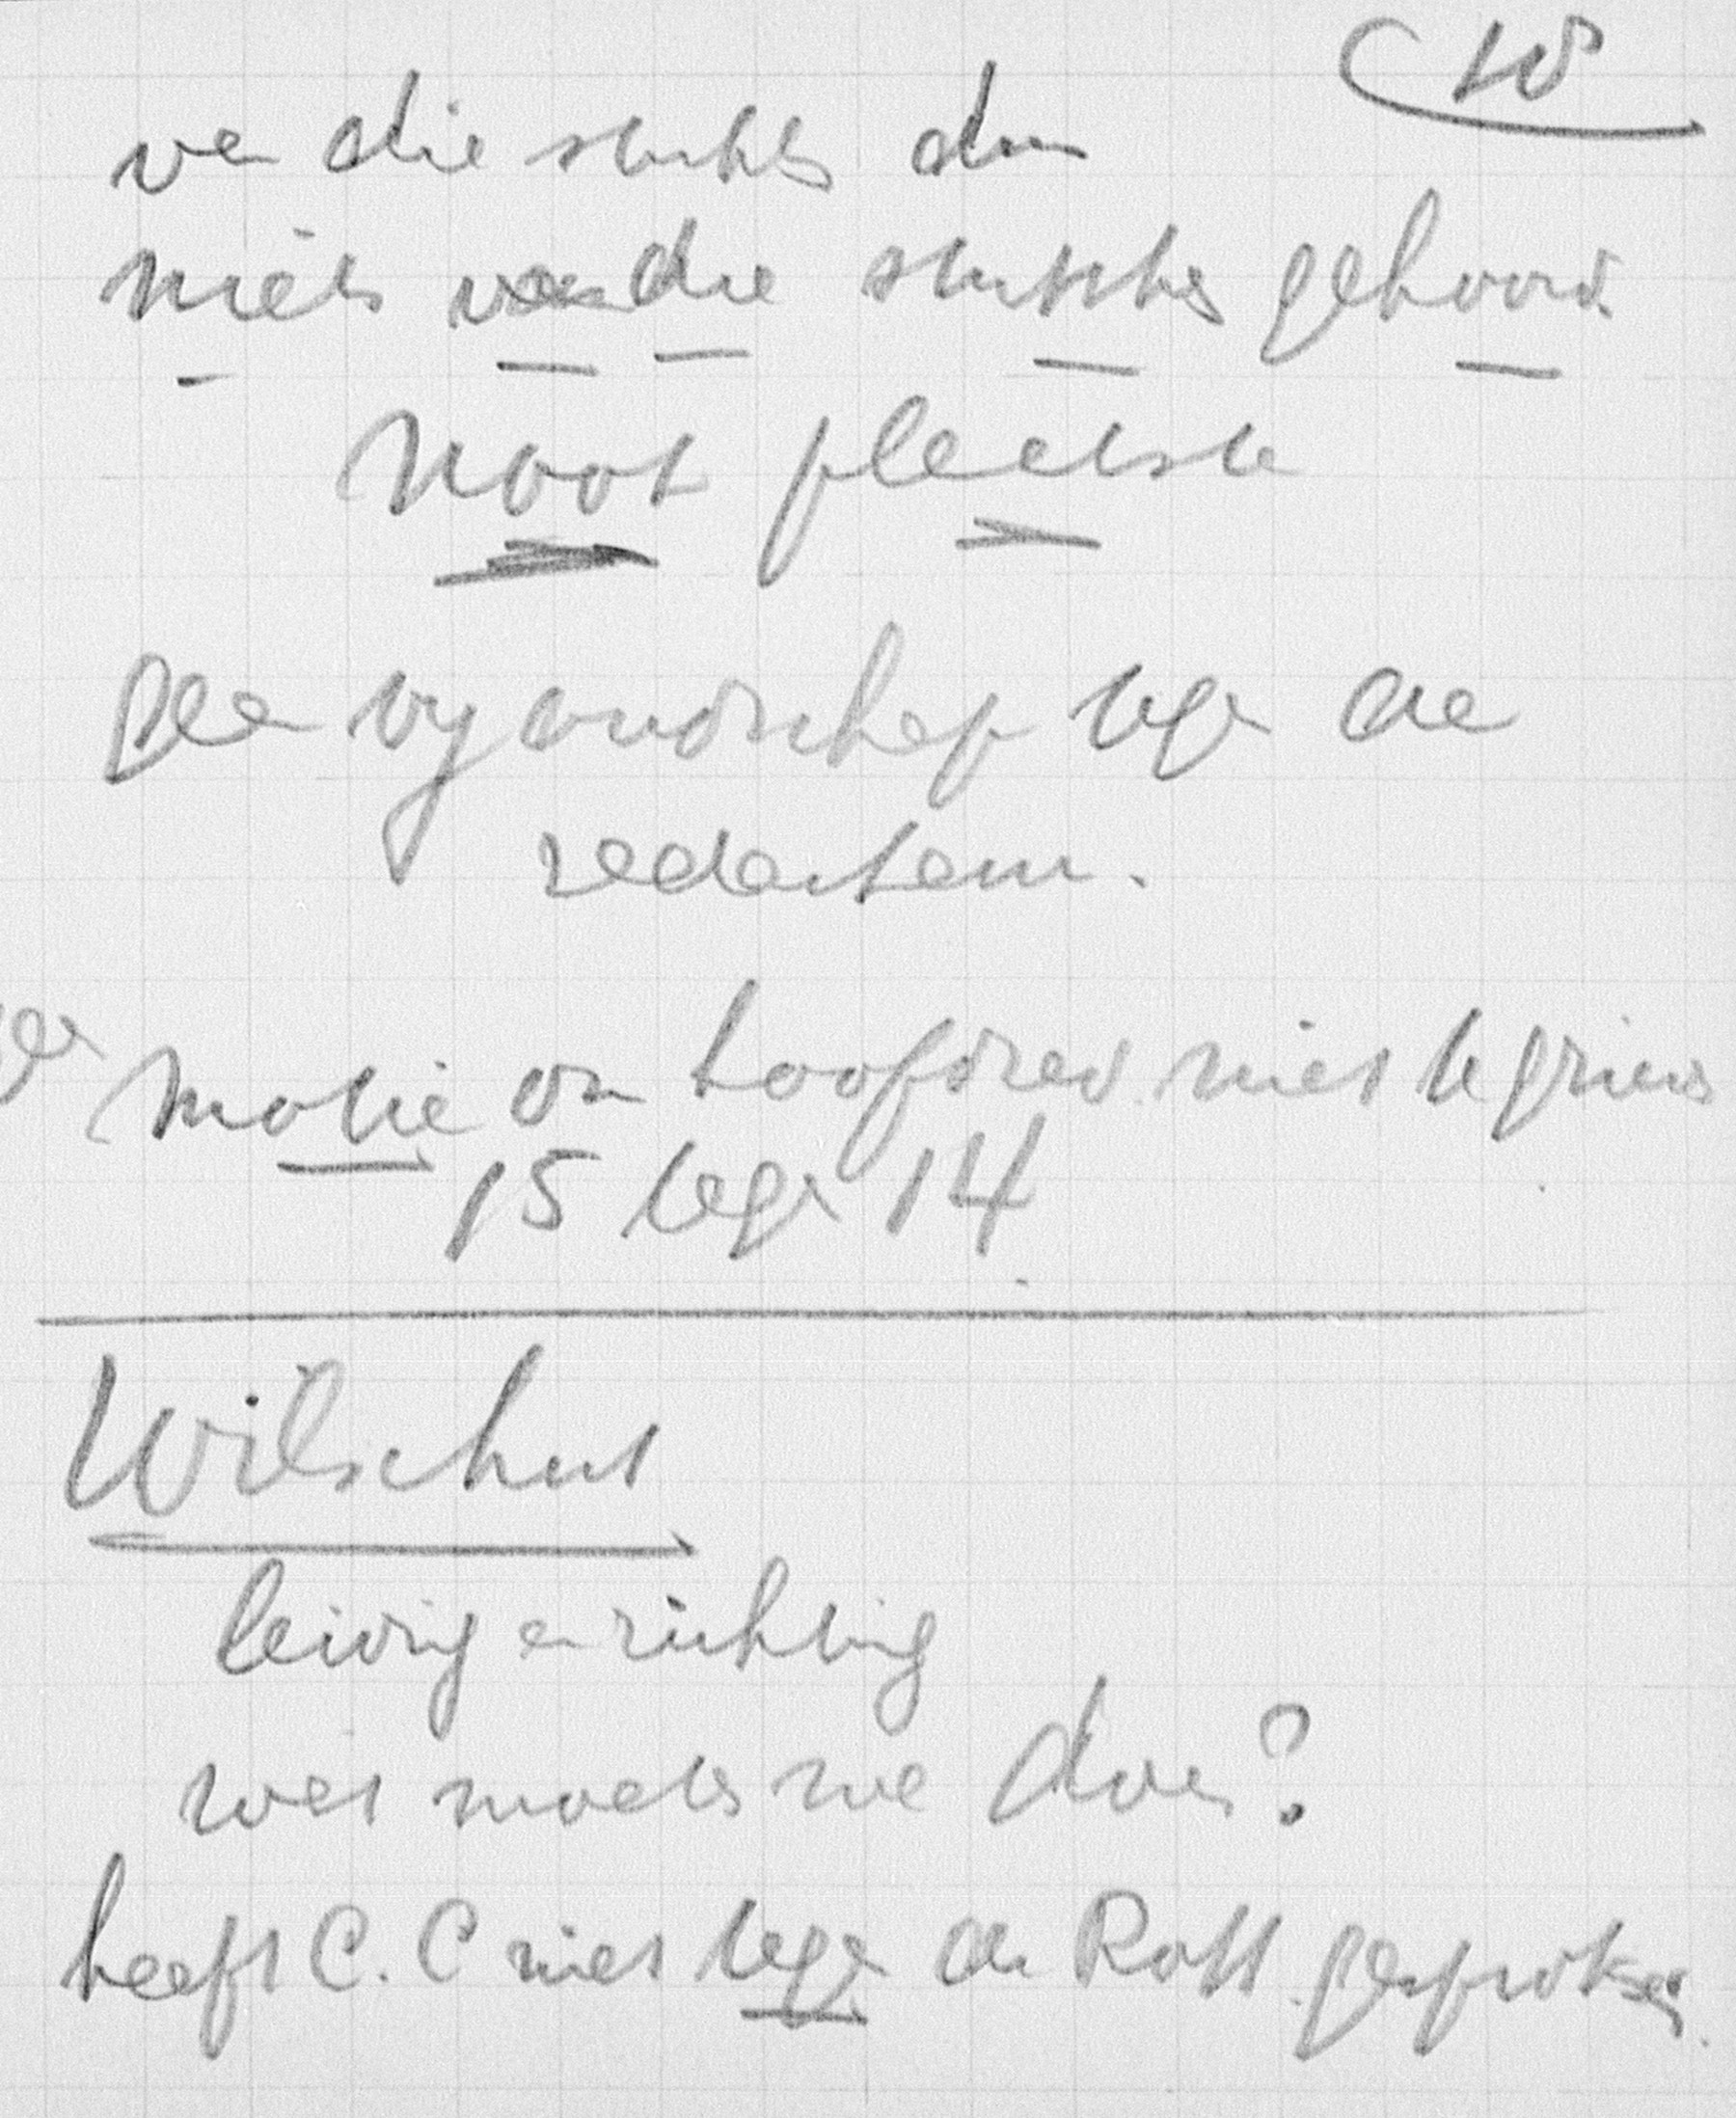 10
van die stukken dan
niets van die stukken gehoord.
nooit plaatste
Geen vijandschap tegen de
redacteur.
motie om hoofdred. niet te griev
15 tegen 14.
Wilschut
leiding en richting
wat moeten we doen?
heeft C. C niet tegen de Rott. gesproken.